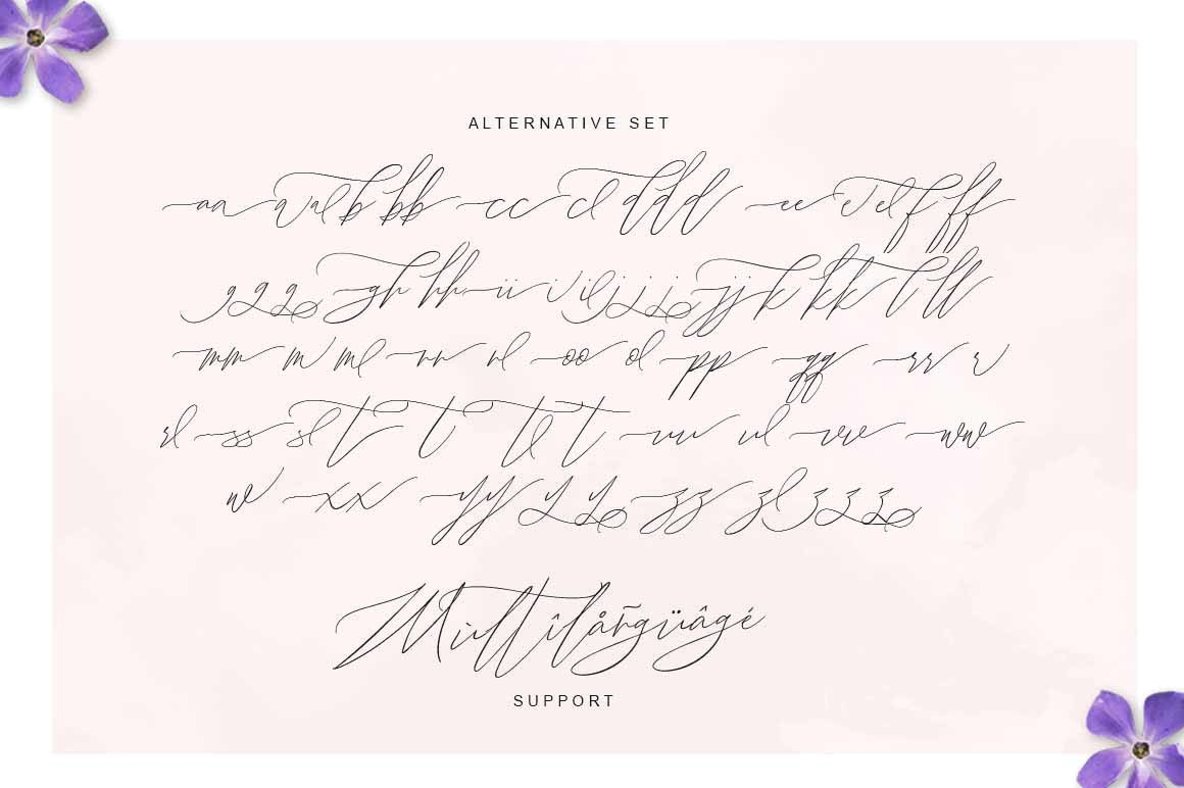 ALTERNATIVE SET
aa a al b bb cc cl d dd ee e el f ff
g g g gh hh ii i il j j j jj k kk l ll
mm m ml nn nl oo ol pp qq rr r
rl ss sl t t tl t uu ul vv ww
w xx yy y y zz z z z z
Mùltîlåñgüâgé
SUPPORT